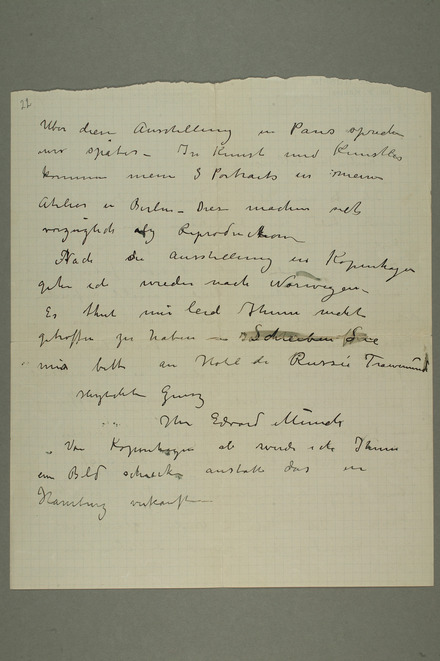 22
Über diese Ausstellung in Paris sprechen
wir später – In Kunst und Künstler
kommen meine 3 Portraits in meinem
Atelier in Berlin – Diese machen sich
vorzüglich als Reproduktionen
Nach der Ausstellung in Kopenhagen
gehe ich wieder nach Norwegen –
Es thut mir leid Ihnen nicht
getroffen zu haben – Schreiben Sie
mir bitte an Hotel de Russie Travemünde
Herzlichen Gruss
Ihr Edvard Munch
Von Kopenhagen ab werde ich Ihnen
ein Bild schicken anstatt das in
Hamburg verkauften